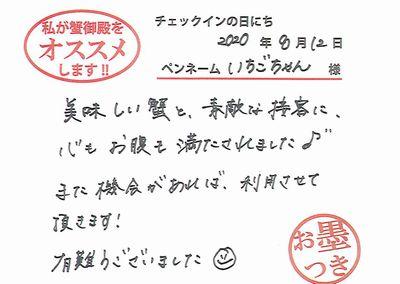 私が蟹御殿を
オススメ
します!!
チェックインの日にち
2020 年 8月 12日
ペンネーム いちごちゃん 様
美味しい蟹と、素敵な接客に、
心も お腹も 満たされました♪
また 機会があれば、利用させて
頂きます!
有難うございました
お墨
つき